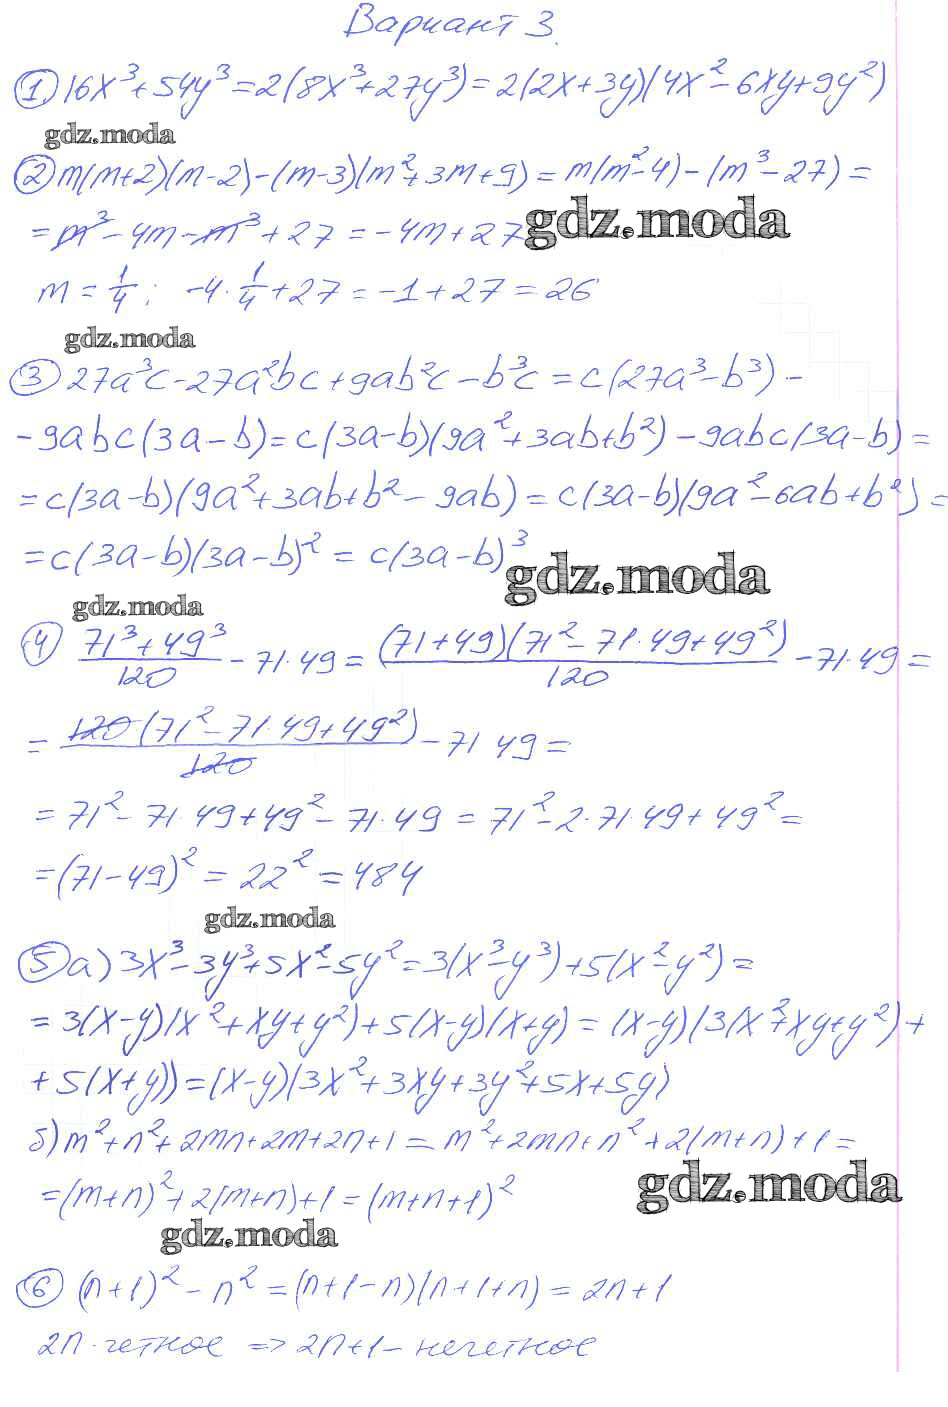 Вариант 3.
① 16x³+54y³=2(8x³+27y³)=2(2x+3y)(4x²-6xy+9y²)
gdz.moda
② m(m+2)(m-2)-(m-3)(m²+3m+9)=m(m²-4)-(m³-27)=
=m³-4m-m³+27=-4m+27
gdz.moda
m=1/4; -4·1/4+27=-1+27=26
gdz.moda
③ 27a³c-27a²bc+9ab²c-b³c=c(27a³-b³)-
-9abc(3a-b)=c(3a-b)(9a²+3ab+b²)-9abc(3a-b)=
=c(3a-b)(9a²+3ab+b²-9ab)=c(3a-b)(9a²-6ab+b²)=
=c(3a-b)(3a-b)²=c(3a-b)³
gdz.moda
gdz.moda
④ (71³+49³)/120-71·49=((71+49)(71²-71·49+49²))/120-71·49=
=(120(71²-71·49+49²))/120-71·49=
=71²-71·49+49²-71·49=71²-2·71·49+49²=
=(71-49)²=22²=484
gdz.moda
⑤ а) 3x³-3y³+5x²-5y²=3(x³-y³)+5(x²-y²)=
=3(x-y)(x²+xy+y²)+5(x-y)(x+y)=(x-y)(3(x²+xy+y²)+
+5(x+y))=(x-y)(3x²+3xy+3y²+5x+5y)
б) m²+n²+2mn+2m+2n+1=m²+2mn+n²+2(m+n)+1=
=(m+n)²+2(m+n)+1=(m+n+1)²
gdz.moda
gdz.moda
⑥ (n+1)²-n²=(n+1-n)(n+1+n)=2n+1
2n-четное => 2n+1-нечетное